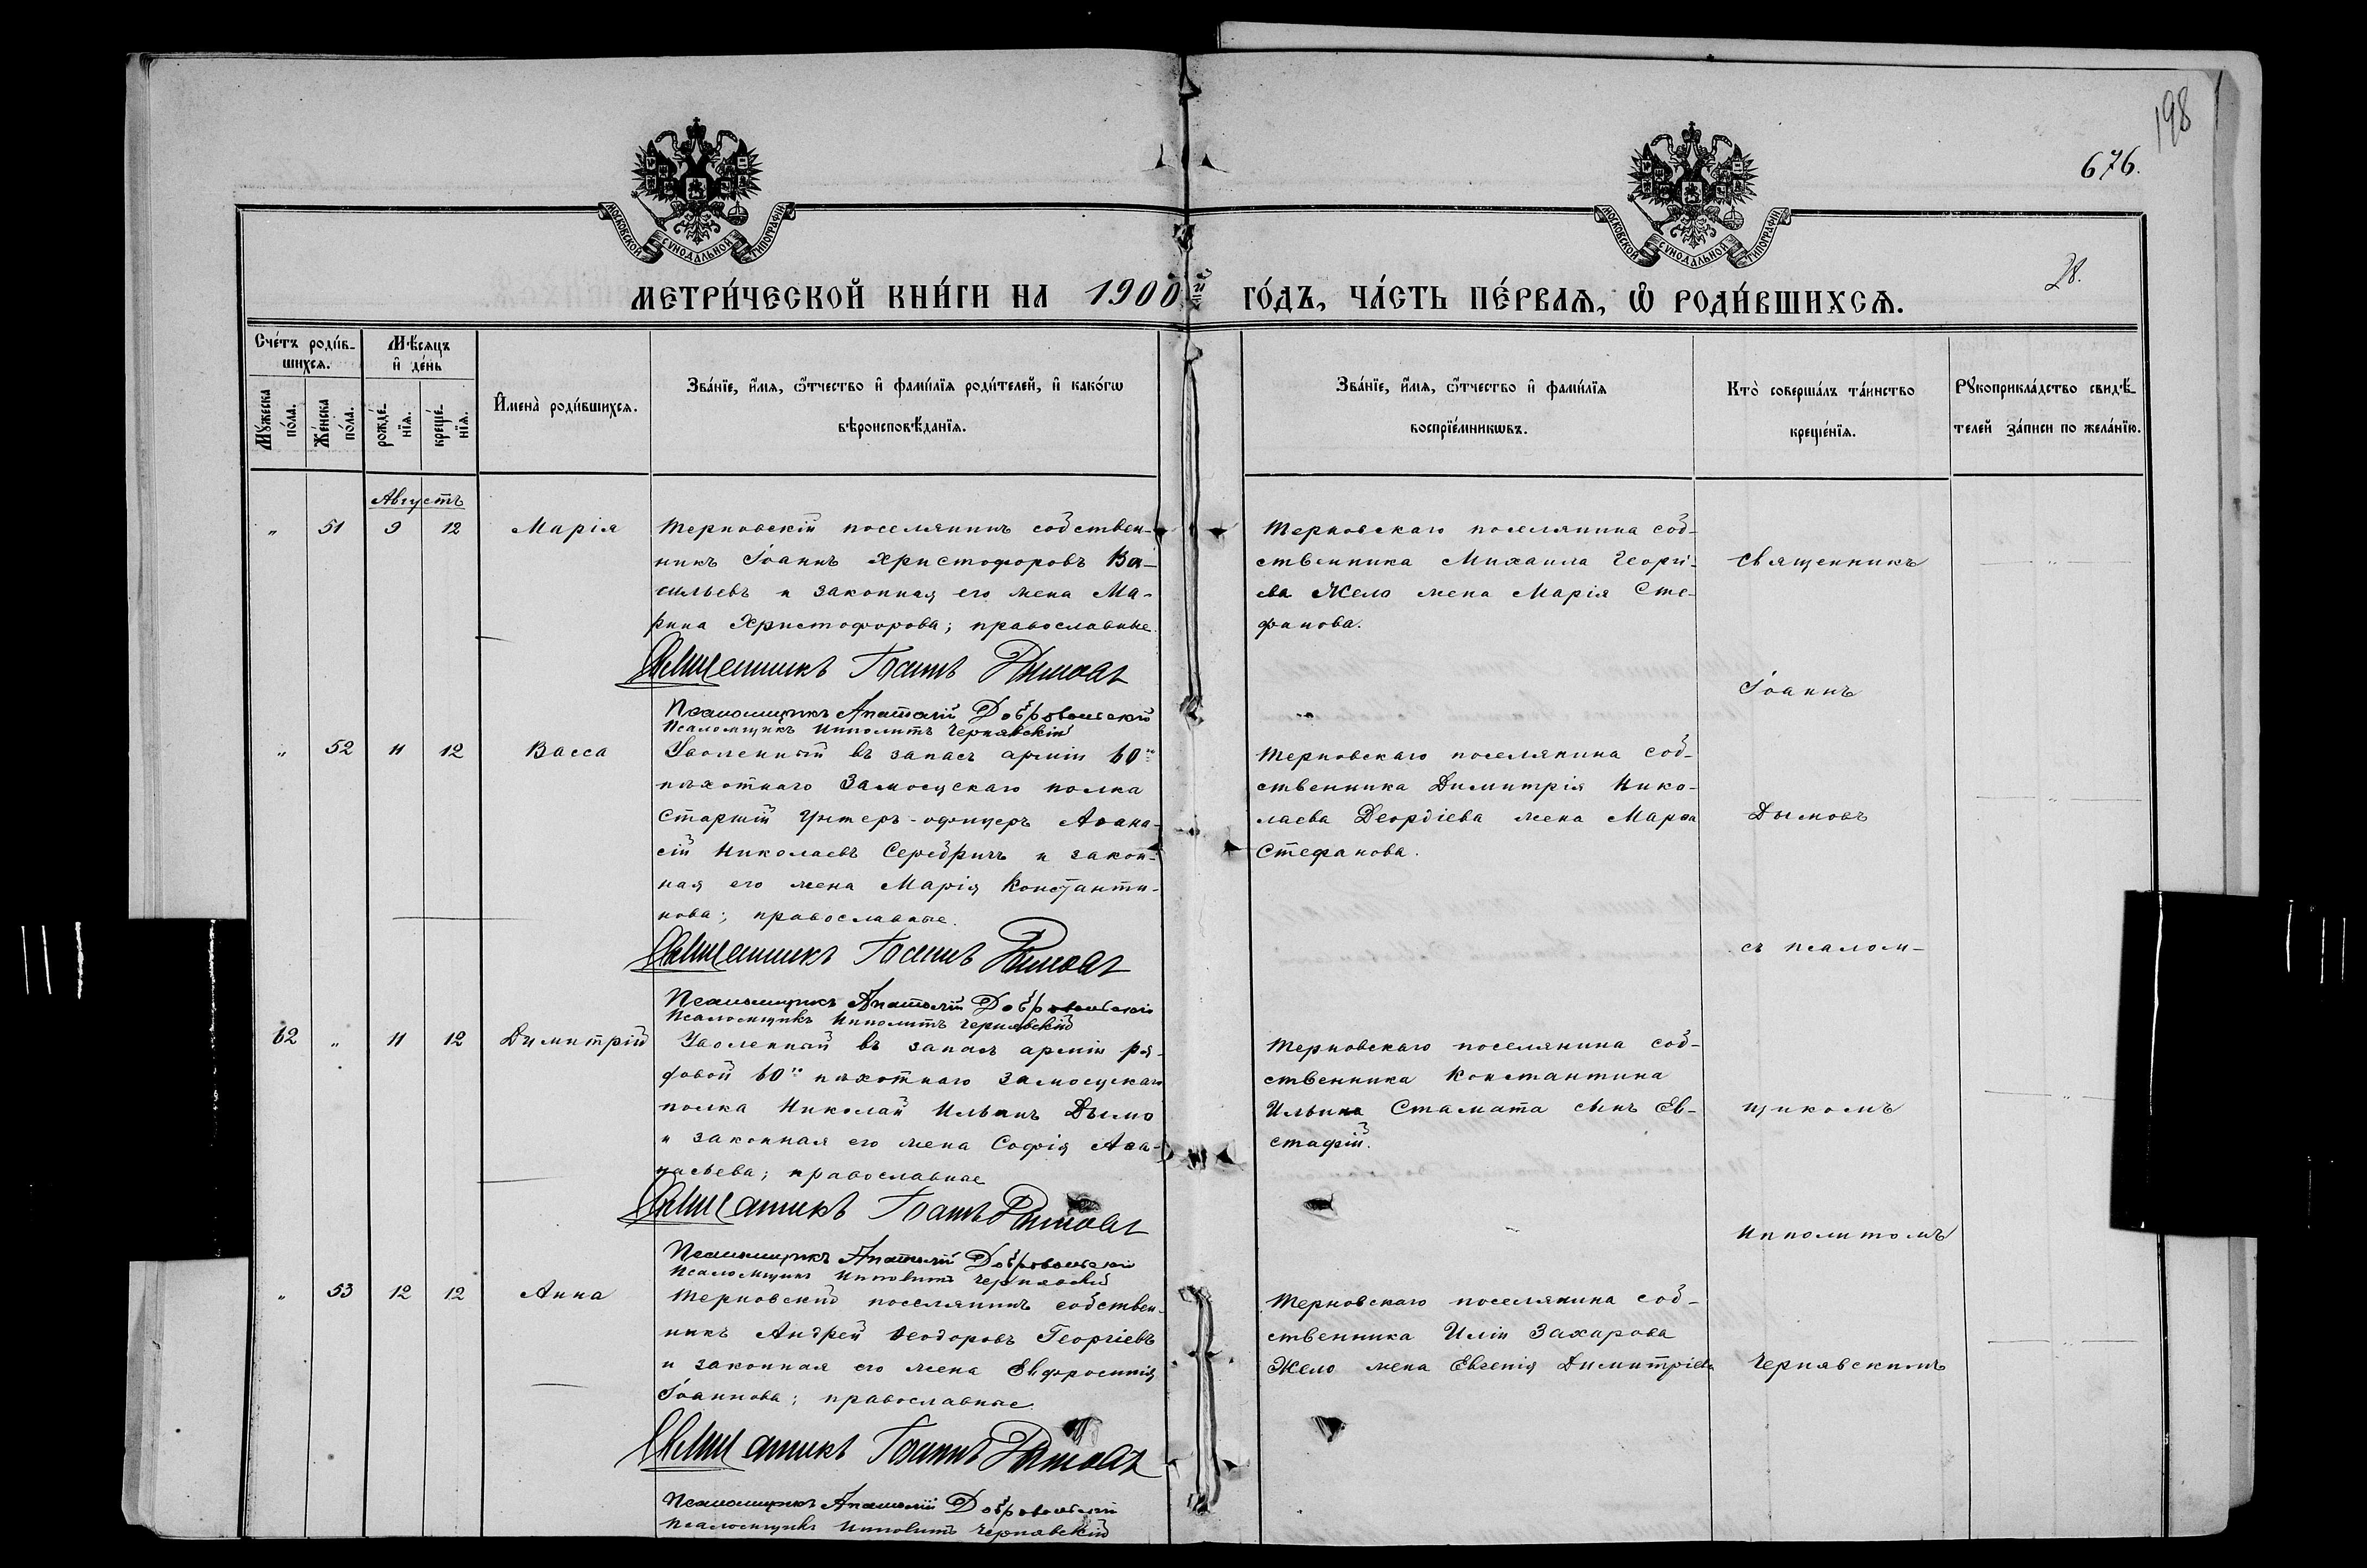 198
676.
28.
МОСКОВСКОЙ СѴНОДАЛЬНОЙ ТИПОГРАФІИ
МОСКОВСКОЙ СѴНОДАЛЬНОЙ ТИПОГРАФІИ
МЕТРИ́ЧЕСКОЙ КНИ́ГИ НА 1900й ГО́ДЪ, ЧА́СТЬ ПЕ́РВАЯ, Ѡ РОДИ́ВШИХСЯ.
Сче́тъ роди́в-
шихся.
Мꙋ́жеска по́ла.
Же́нска по́ла.
Мѣ́сяцъ и де́нь
рожде́-нїя.
креще́-нїя.
Имена̀ роди́вшихся.
Зва́нїе, и́мя, ѻ́тчество и фами́лїя роди́телей, и како́гѡ
вѣроисповѣ́данїя.
Зва́нїе, и́мя, ѻ́тчество и фами́лїя
воспрїе́мникѡвъ.
Кто̀ соверша́лъ та́инство
креще́нїя.
Рꙋкоприкла́дство свидѣ́-
телей за́писи по жела́нїю.
Августъ
„ 51 9 12 Марія
Терновскій поселянинъ собствен-
никъ Іоаннъ Христофоровъ Ва-
сильевъ и законная его жена Ма-
рина Христофорова; православные.
Священникъ Іоаннъ Дымовъ
Псаломщикъ Анатолій Добровольскій
Псаломщикъ Ипполитъ Чернявскій
Терновскаго поселянина соб-
ственника Михаила Георгі-
ева Жело жена Марія Сте-
фанова.
Священникъ
Іоаннъ
Дымовъ
съ псалом-
щикомъ
Ипполитомъ
Чернявскимъ
„ 52 11 12 Васса
Уволенный въ запасъ арміи 60го
пѣхотнаго Замосцскаго полка
Старшій Унтеръ-офицеръ Аѳана-
сій Николаевъ Середричъ и закон-
ная его жена Марія Константи-
нова; православные.
Священникъ Іоаннъ Дымовъ
Псаломщикъ Анатолій Добровольскій
Псаломщикъ Ипполитъ Чернявскій
Терновскаго поселянина соб-
ственника Димитрія Нико-
лаева Деордіева жена Марѳа
Стефанова.
62 „ 11 12 Димитрій
Уволенный въ запасъ арміи ря-
довой 60го пѣхотнаго Замосцскаго
полка Николай Ильинъ Дымо
и законная его жена Софія Аѳа-
насьева; православные
Священникъ Іоаннъ Дымовъ
Псаломщикъ Анатолій Добровольскій
Псаломщикъ Ипполитъ Чернявскій
Терновскаго поселянина соб-
ственника Константина
Ильина Стамата сынъ Ев-
стафій.
„ 53 12 12 Анна
Терновскій поселянинъ собствен-
никъ Андрей Ѳеодоровъ Георгіевъ
и законная его жена Евфросинія
Іоаннова; православные.
Священникъ Іоаннъ Дымовъ
Псаломщикъ Анатолій Добровольскій
Псаломщикъ Ипполитъ Чернявскій
Терновскаго поселянина соб-
ственника Иліи Захарова
Жело жена Евгенія Димитріева